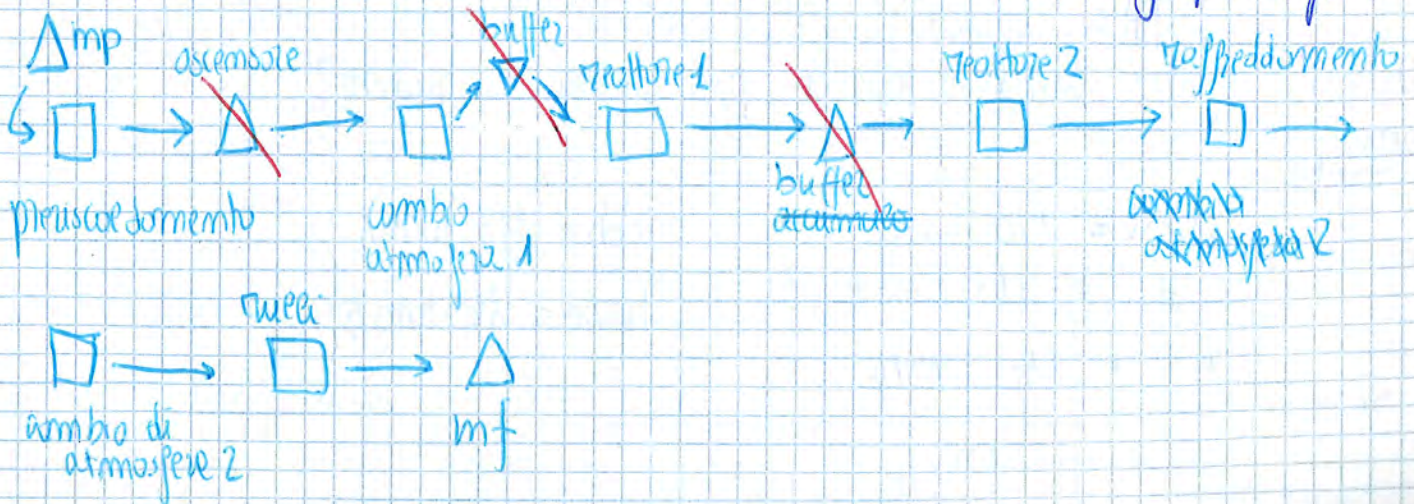 mp
ascensore
buffer
reattore 1
reattore 2
raffreddamento
preriscaldamento
cambio
atmosfera 1
buffer
accumulo
cambio
atmosfera 2
rulli
cambio di
atmosfere 2
mf